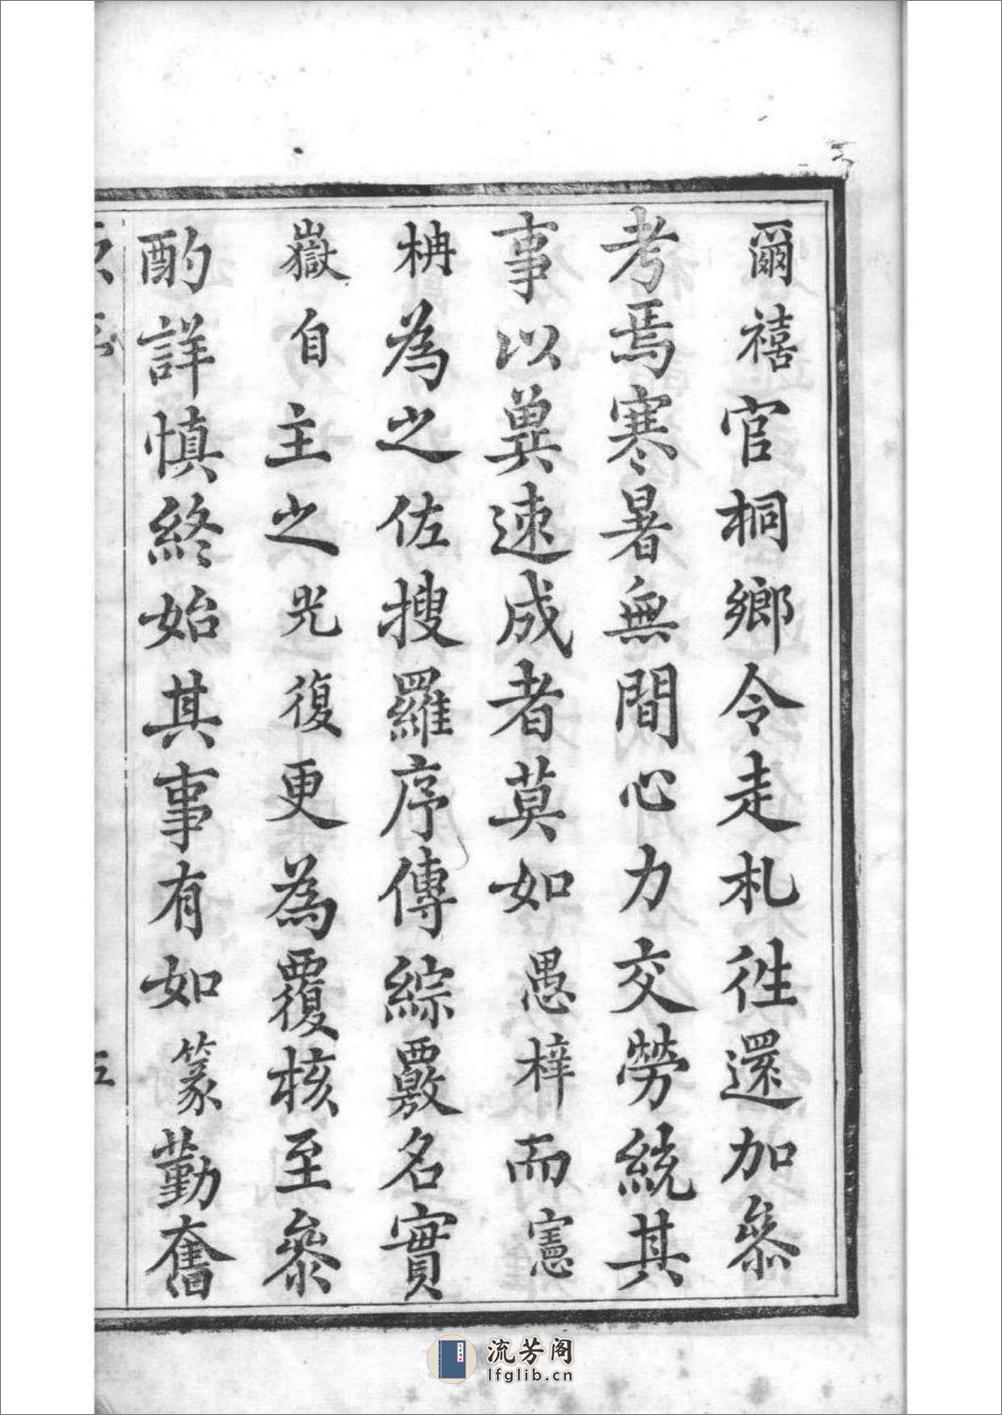 爾禧官桐鄉令走札徃還加叅
考焉寒暑無間心力交勞統其
事以兾速成者莫如愚梓而憲
柟為之佐搜羅序傳綜覈名實
嶽自主之光復更為覆核至叅
酌詳慎終始其事有如篆勤奮
流芳阁
lfglib.cn